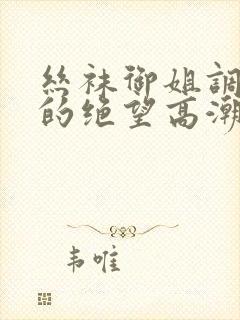 丝袜御姐調
的绝望高潮
韦唯